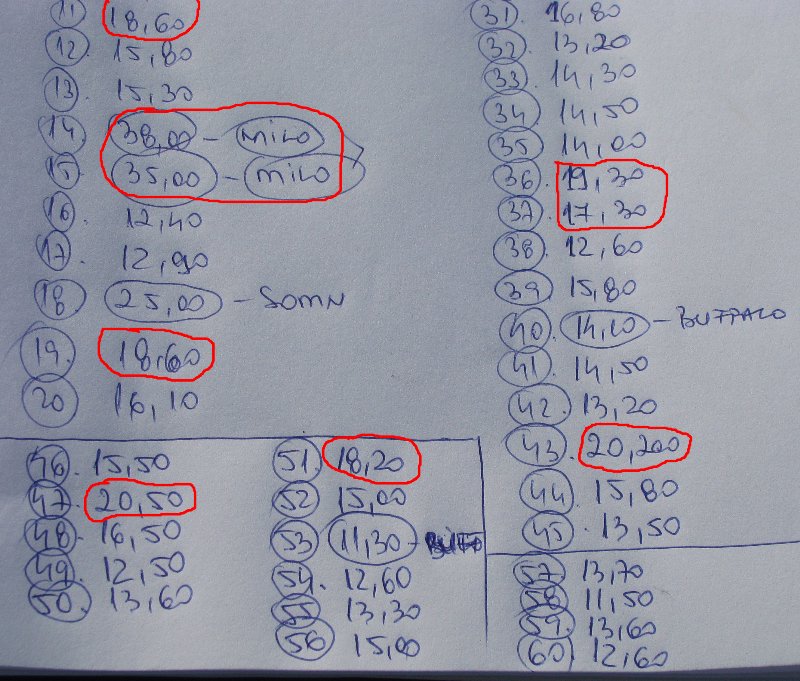 11 18,60
12. 15,80
13. 15,30
14. 38,00 - MILO
15. 35,00 - MILO
16. 12,40
17. 12,90
18 25,00 - SOMN
19. 18,60
20 16,10
31. 16,80
32. 13,20
33. 14,30
34 14,50
35 14,00
36. 19,30
37. 17,30
38. 12,60
39. 15,80
40. 14,10 - BUFFALO
41. 14,50
42. 13,20
43. 20,200
44. 15,80
45. 13,50
46. 15,50
47. 20,50
48. 16,50
49. 12,50
50. 13,60
51. 18,20
52 15,00
53 11,30 - BUFF
54. 12,60
55. 13,30
56 15,00
57. 13,70
58 11,50
59. 13,60
60. 12,60